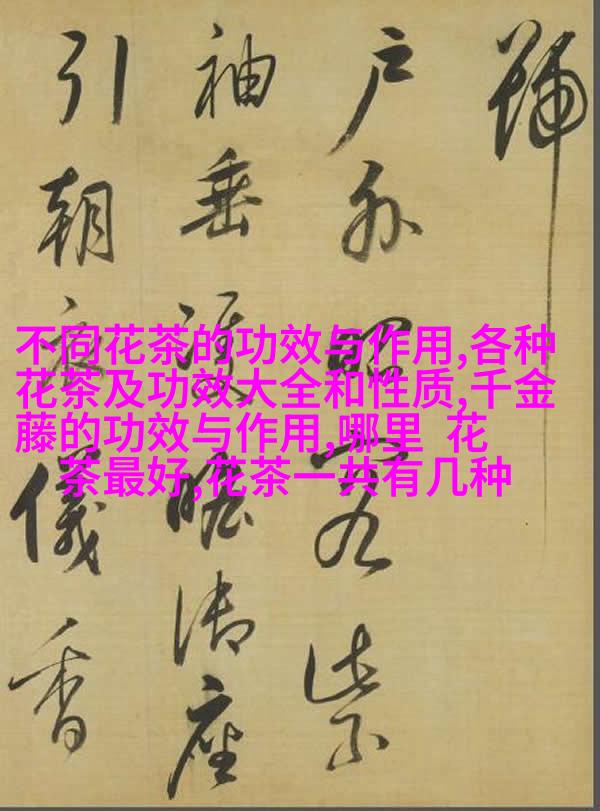 號
户外昭容紫
袖垂雙瞻御座
引朝儀香
不同花茶的功效与作用,各种
花茶及功效大全和性质,千金
藤的功效与作用,哪里 花
茶最好,花茶一共有几种